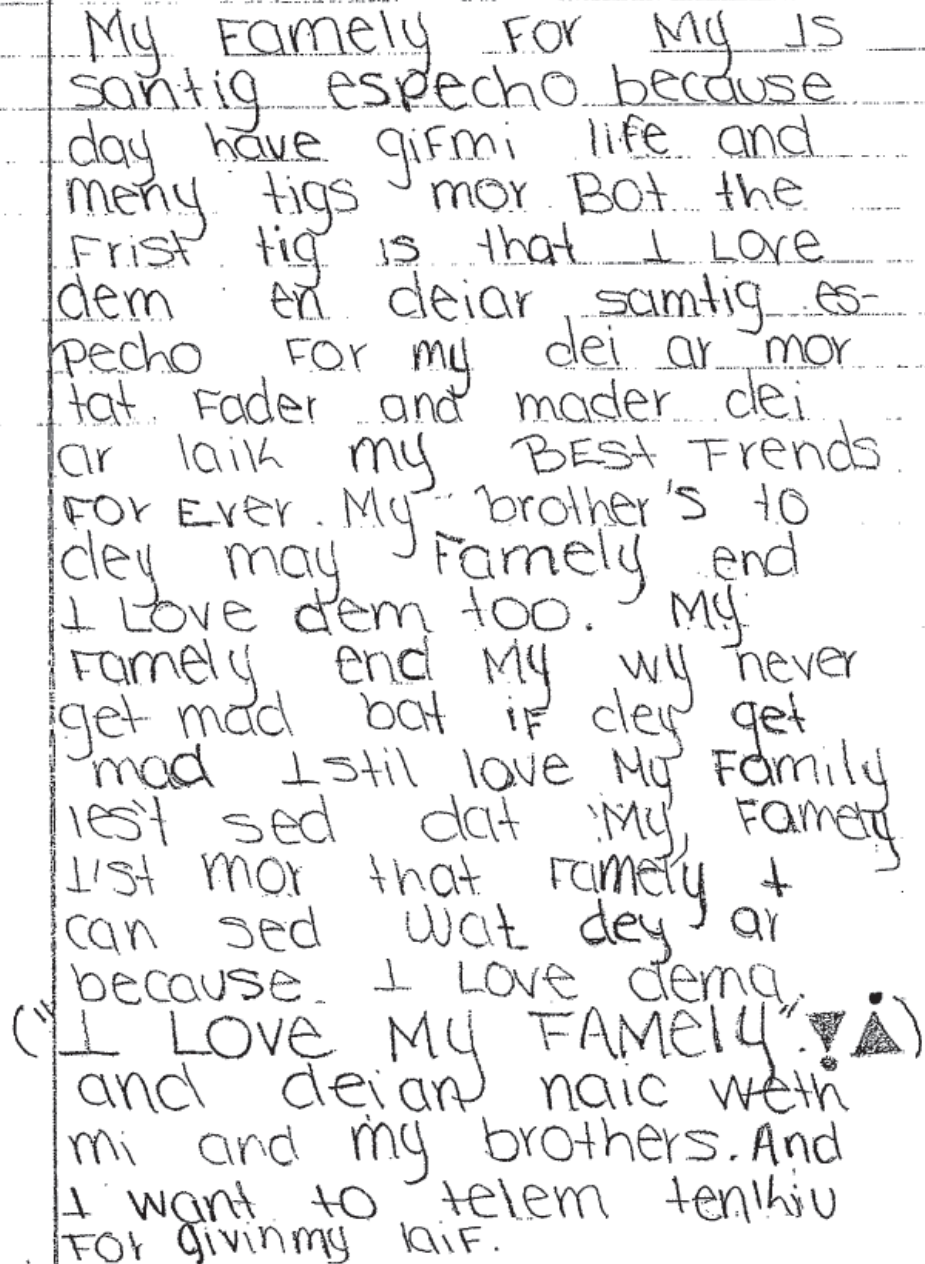 My Famely For My Is
santig especho because
day have gifmi life and
meny tigs mor Bot the
Frist tig is that I Love
dem en deiar samtig es-
pecho For my dei ar mor
tat Fader and mader dei
ar laik my BEST Frends
For Ever. My brother's to
dey may Famely end
I Love dem too. My
Famely end My wy never
get mad bat if dey get
mad I stil love My Family
lest sed dat My Famely
I'st mor that Famely I
can sed wat dey ar
because I Love dema.
("I LOVE My FAMely".!¡)
and deiar naic weth
mi and my brothers. And
I want to telem tenkhiu
For givinmy laif.